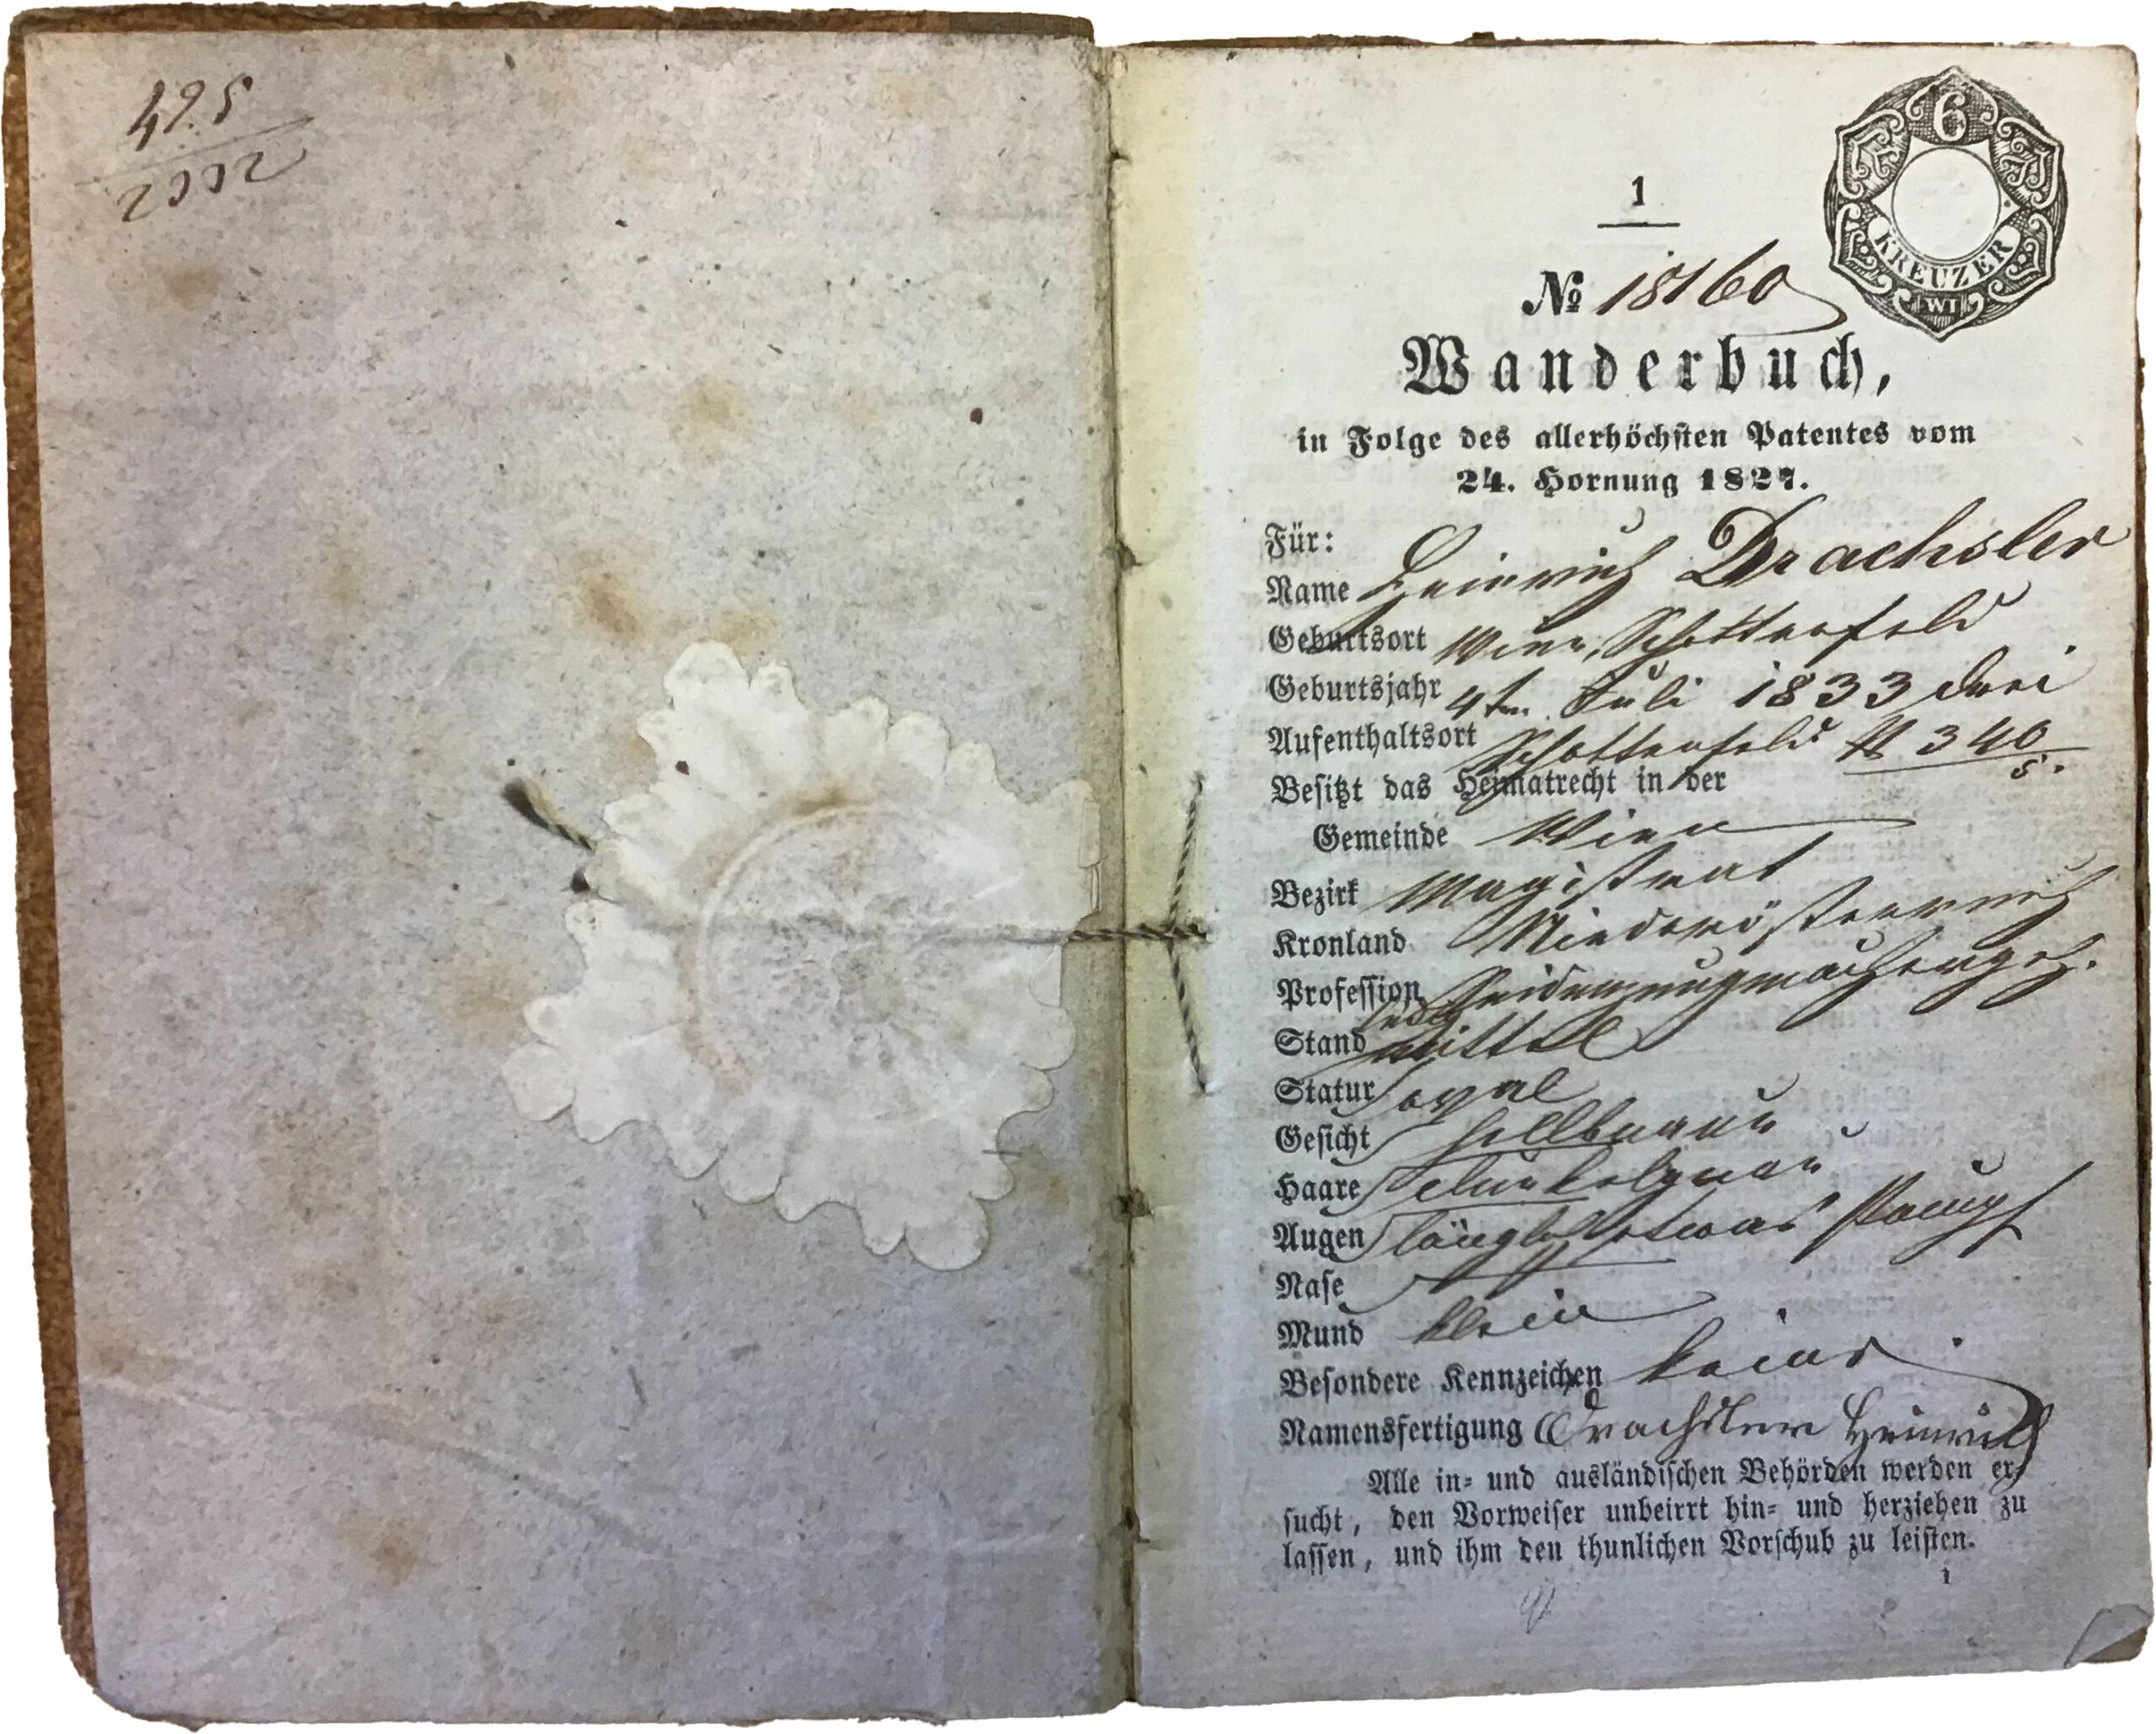 425
2002
6
KREUZER
WI
1
№ 18160
Wanderbuch,
in Folge des allerhöchsten Patentes vom
24. Hornung 1827.
Für:
Name Heinrich Drachsler
Geburtsort Wien, Schottenfeld
Geburtsjahr 4ten Juli 1833 drei
Aufenthaltsort Schottenfeld N 340
5.
Besitzt das Heimatrecht in der
Gemeinde Wien
Bezirk Magistrat
Kronland Niederösterreich
Profession Seidenzeugmacherges.
Stand ledig
Statur mittel
Gesicht oval
Haare hellbraun
Augen dunkelgrau
Nase längl. etwas stumpf
Mund klein
Besondere Kennzeichen keine
Namensfertigung Drachsler Heinrich
Alle in- und ausländischen Behörden werden er-
sucht, den Vorweiser unbeirrt hin- und herziehen zu
lassen, und ihm den thunlichen Vorschub zu leisten.
1